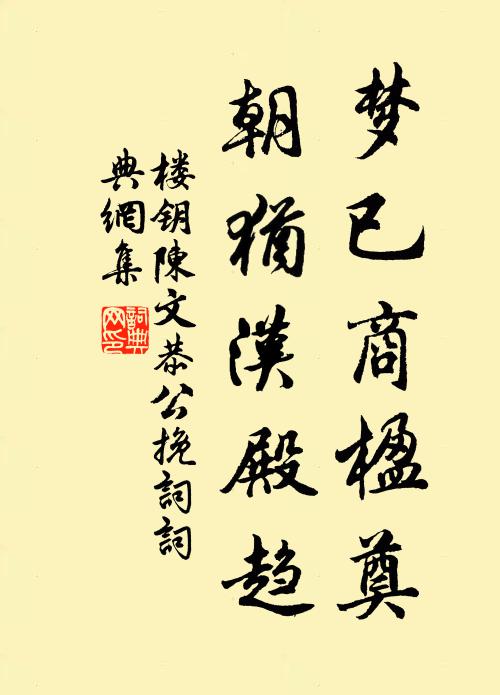 梦已商楹奠
朝犹漢殿趋
楼钥陳文恭公挽詞詞
典網集
詞典网印